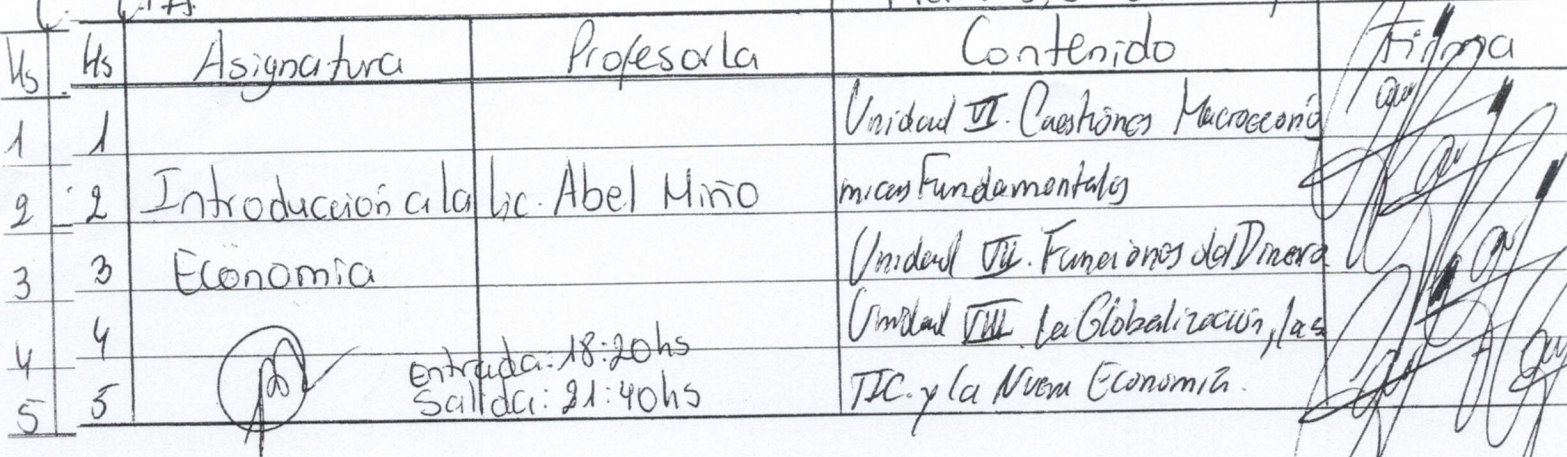 Hs Hs Asignatura Profesor/a Contenido Firma
1 1 Unidad VI. Cuestiones Macroeconó
2 2 Introducción a la Lic. Abel Miño micas Fundamentales
3 3 Economía Unidad VII. Funciones del Dinero
4 4 Unidad VIII. La Globalización, las
Entrada: 18:20hs
5 5 Salida: 21:40hs TIC. y la Nueva Economía.